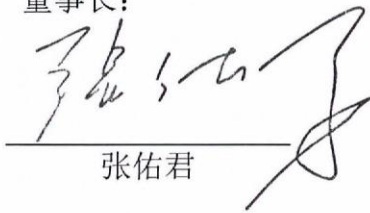 董事长：
张佑君
张佑君